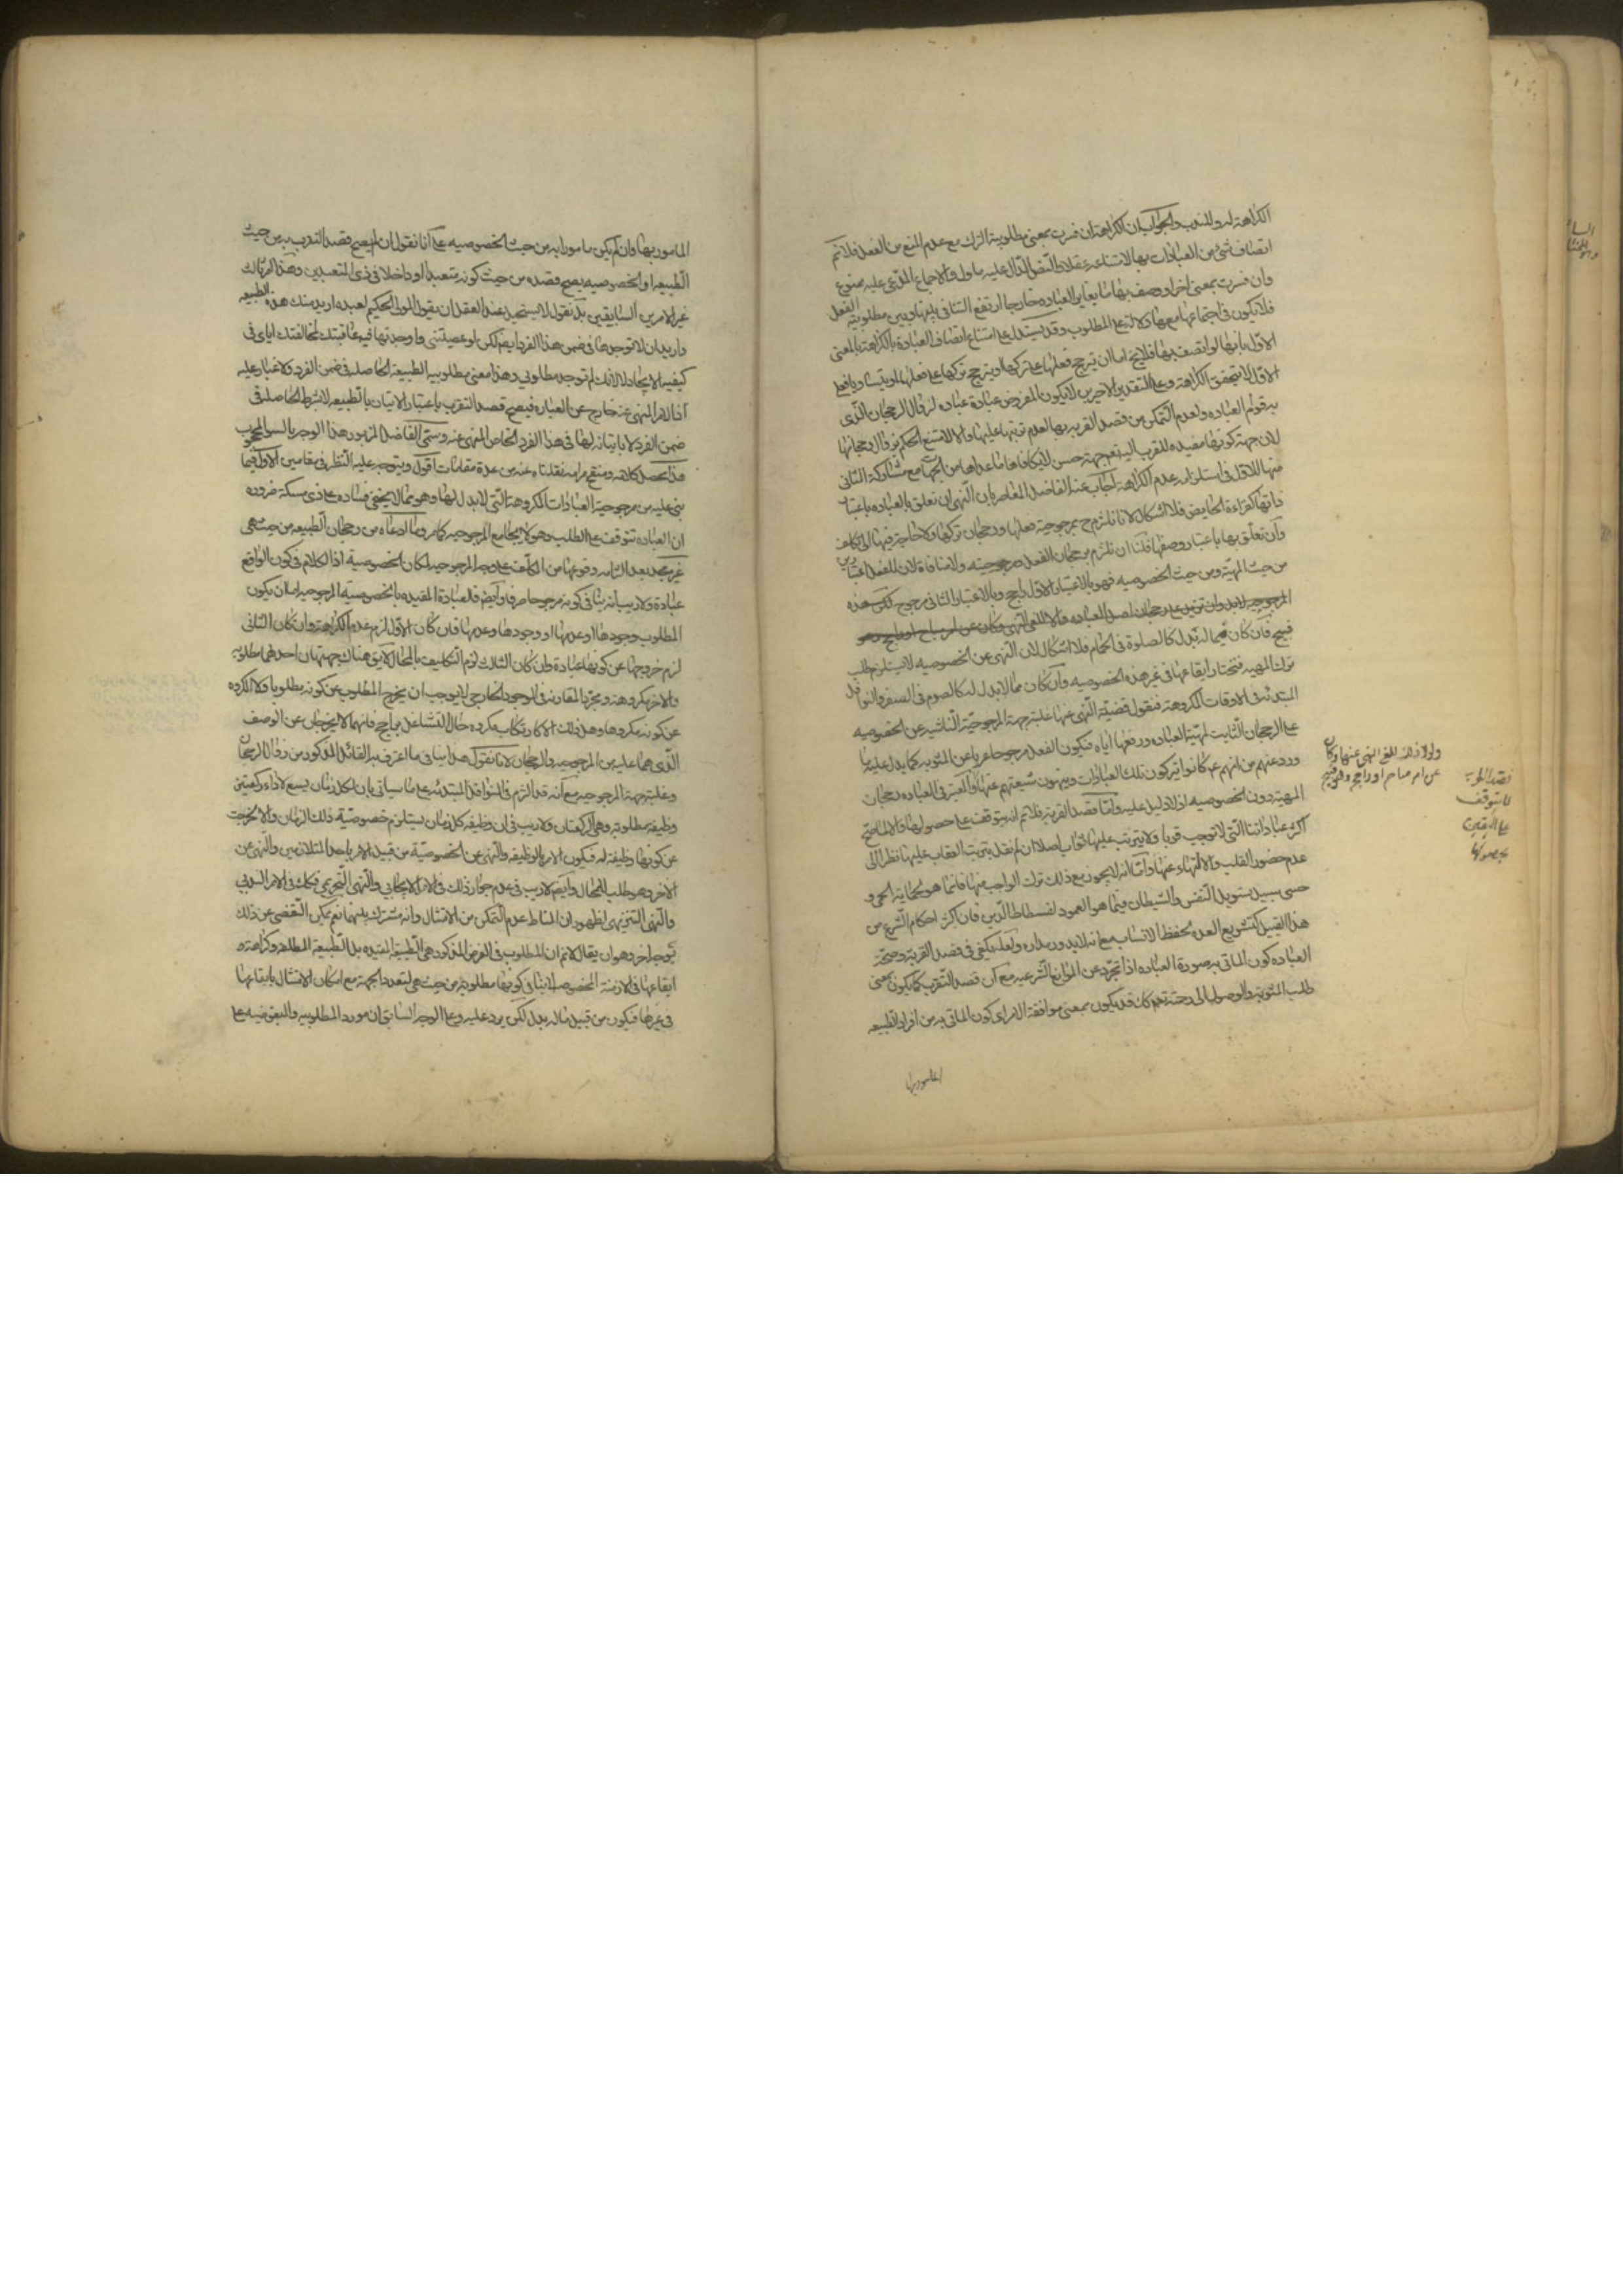 الكراهة له وللندب والجواب ان الكراهة ان فسرت بمعنى مطلوبية الترك مع عدم المنع من الفعل فلا نم
اتصاف شئ من العبادات بها لامتناعه عقلا والنقل الدال عليه ماول والاجماع المدعى عليه ممنوع
وان فسرت بمعنى اخر او وصف بها ما يغاير العباده خارجا ارتفع التنافى بينها وبين مطلوبية الفعل
فلا يكون فى اجتماعها معها دلالة على المطلوب وقد يستدل على امتناع اتصاف العبادة بالكراهة بالمعنى
الاول بانها لو اتصف بها فلا يخ اما ان يترجح فعلها على تركها او يترجح تركها على فعلها او يتساويا فعلى
الاول لا يتحقق الكراهة وعلى التقديرين الاخيرين لا يكون المفروض عبادة عباده لزوال الرجحان الذى
به قوام العباده ولعدم التمكن من قصد القربه بها لعدم ترتبها عليها والا لامتنع الحكم بزوال رجحانها
لان جهة كونها مفيده للقرب اليه تعم جهة حسن لا يكافاها ما عداها من الجهات مع مشاركة الثانى
منها للاول فى استلزامه عدم الكراهة اجاب عنه الفاضل المعاصر بان النهى ان تعلق بالعباده باعتبار
ذاتها كقراءة الحايض فلا اشكال لانا نلتزم ح بمرجوحية فعلها ورجحان تركها ولا حاجة فيها الى تكلف
وان تعلق بها باعتبار وصفها فلنا ان نلتزم برجحان الفعل ومرجوحيته ولا منافاة لان للفعل اعتبارين
من حيث المهية ومن حيث الخصوصيه فهو بالاعتبار الاول راجح وبالاعتبار الثانى مرجوح لكن هذه
المرجوحيه لابد وان تزيد على رجحان اصل العباده والا للغى النهى وكان عن امر مباح او راجح وهو
قبيح فان كان مما له بدل كالصلوة فى الحمام فلا اشكال لان النهى عن الخصوصيه لا يستلزم طلب
ترك المهيه فتختار ايقاعها فى غير هذه الخصوصيه وان كان مما لا بدل له كالصوم فى السفر والنوافل
المبتدئة فى الاوقات المكروهة فنقول قضية النهى عنها غلبة جهة المرجوحية الناشيه عن الخصوصيه
على الرجحان الثابت لمهية العباده ورفعها اياه فيكون الفعل مرجوحا عريا عن المثوبه كما يدل عليه ما
ورد عنهم من انهم ع كانوا يتركون تلك العبادات وينهون شيعتهم عنها والعبرة فى العباده برجحان
المهية دون الخصوصيه اذ لا دليل عليه واما قصد القربة فلا نم انه يتوقف على حصولها والا لما صح
اكثر عباداتنا التى لا توجب قربا ولا يترتب عليها ثواب اصلا ان لم نقل بترتب العقاب عليها نظرا الى
عدم حضور القلب والالتهاء عنها واما انه لا يجوز مع ذلك ترك الواجب منها فانما هو لحماية الحمى و
حسم سبيل تسويل النفس والشيطان فيما هو العمود لفسطاط الدين فان اكثر احكام الشرع من
هذا القبيل كتشريع العده لحفظ الانساب مع انه لا يدور مداره ولعله يكفى فى قصد القربة وصحة
العباده كون الماتى به صورة العباده اذا تجرد عن الموانع الشرعيه مع ان قصد التقرب كما يكون بمعنى
طلب المثوبة والوصول الى رحمته تعم كك قد يكون بمعنى موافقة الامر اى كون الماتى به من افراد الطبيعه
المامور بها
ولولا ذلك للغى النهى عنها وكان
عن امر مباح او راجح وهو قبيح
قصد القربة
لا يتوقف
على اليقين
بحصولها
المامور بها وان لم يكن مامورا به من حيث الخصوصيه على انا نقول ان لم يصح قصد التقرب به من حيث
الطبيعه او الخصوصيه يصح قصده من حيث كونه متعبدا او داخلا فى ذى المتعبدين وهذا امر ثالث
غير الامرين السابقين بل نقول لا يستحيل عند العقل ان يقول المولى الحكيم لعبده اريد منك هذه الطبيعه
واريد ان لا توجدها فى ضمن هذا الفرد ايضا لكن لو عصيتنى واوجدتها فيه عاقبتك لمخالفتك اياى فى
كيفيه الايجاد لا لانك لم توجد مطلوبى وهذا معنى مطلوبيه الطبيعه الحاصله فى ضمن الفرد ولا غبار عليه
اذا الامر المنهى عنه خارج عن العباره فيصح قصد التقرب باعتبار الاتيان بالطبيعه لا بشرط الحاصله فى
ضمن الفرد لا باتيانه لها فى هذا الفرد الخاص المنهى عنه وسمى الفاضل المزبور هذا الوجه بالسر المحجوب
هذا محصل كلامه ومنقح مرامه نقلناه عنه من عدة مقامات اقول ويتوجه عليه النظر فى مقامين الاول فيما
بنى عليه من مرجوحية العبادات المكروهة التى لا بدل لها وهو مما لا يخفى فساده على ذى مسكة ضروره
ان العباده تتوقف على الطلب وهو لا يجامع المرجوحيه كما مر وما ادعاه من رجحان الطبيعه من حيث هى
غير مجد بعد التزامه وقوعها من المكلف على وجه المرجوحيه لمكان الخصوصية اذ الكلام فى كون الواقع
عبادة ولا ريب انه ينافى كونه مرجوحا صرفا وايضا فالعبادة المقيده بالخصوصية المرجوحيه اما ان يكون
المطلوب وجودها او عدمها او وجودها وعدمها فان كان الاول لزم عدم الكراهة وان كان الثانى
لزم خروجها عن كونها عبادة وان كان الثالث لزم التكليف بالمحال لا يق هناك جهتان احدهما مطلوبه
والاخر مكروهة ومجرد المقارنه فى الوجود الخارجى لا يوجب ان يخرج المطلوب عن كونه مطلوبا ولا المكروه
عن كونه مكروها وهل ذلك الا كارتكاب مكروه حال التشاغل براجح فانهما لا يخرجان عن الوصف
الذى هما عليه من المرجوحيه والرجحان لانا نقول هذا ينافى ما اعترف به القائل المذكور من زوال الرجحان
وغلبة جهة المرجوحيه مع انه قد التزم فى النوافل المبتدئه على ما سياتى بان لكل زمان يسع لاداء ركعتين
وظيفة مطلوبة وهى الركعتان ولا ريب فى ان وظيفه كل زمان يستلزم خصوصية ذلك الزمان والا لخرجت
عن كونها وظيفة له فيكون الامر بالوظيفه والنهى عن الخصوصية من قبيل الامر باحد المتلازمين والنهى عن
الاخر وهو طلب للمحال وايضا لا ريب فى عدم جواز ذلك فى الامر الايجابى والنهى التحريمى فكك فى الامر الندبى
والنهى التنزيهى لظهور ان المناط عدم التمكن من الامتثال وانه مشترك بينهما نعم يمكن التفصى عن ذلك
بوجه اخر وهو ان يقال لا نم ان المطلوب فى الفرض المذكور هى الطبيعه المقيده بل الطبيعه المطلقه وكراهة
ايقاعها فى الازمنة المخصوصة لا ينافى كونها مطلوبة من حيث هى لتعدد الجهة مع امكان الامتثال بايقاعها
فى غيرها فيكون من قبيل ماله بدل لكن يرد عليه وعلى الوجه السابق ان مورد المطلوبيه والمبغوضيه على